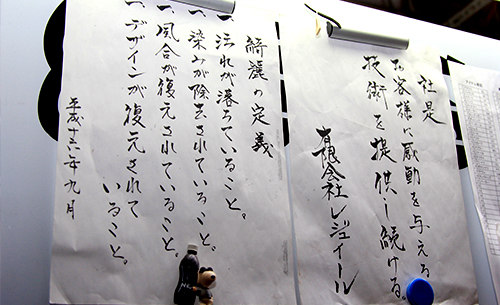 社是
お客様に感動を与える
技術を提供し続ける
有限会社レジュイール
綺麗の定義
一、汚れが落ちていること。
一、染みが除去されていること。
一、風合が復元されていること。
一、デザインが復元されて
いること。
平成十六年九月